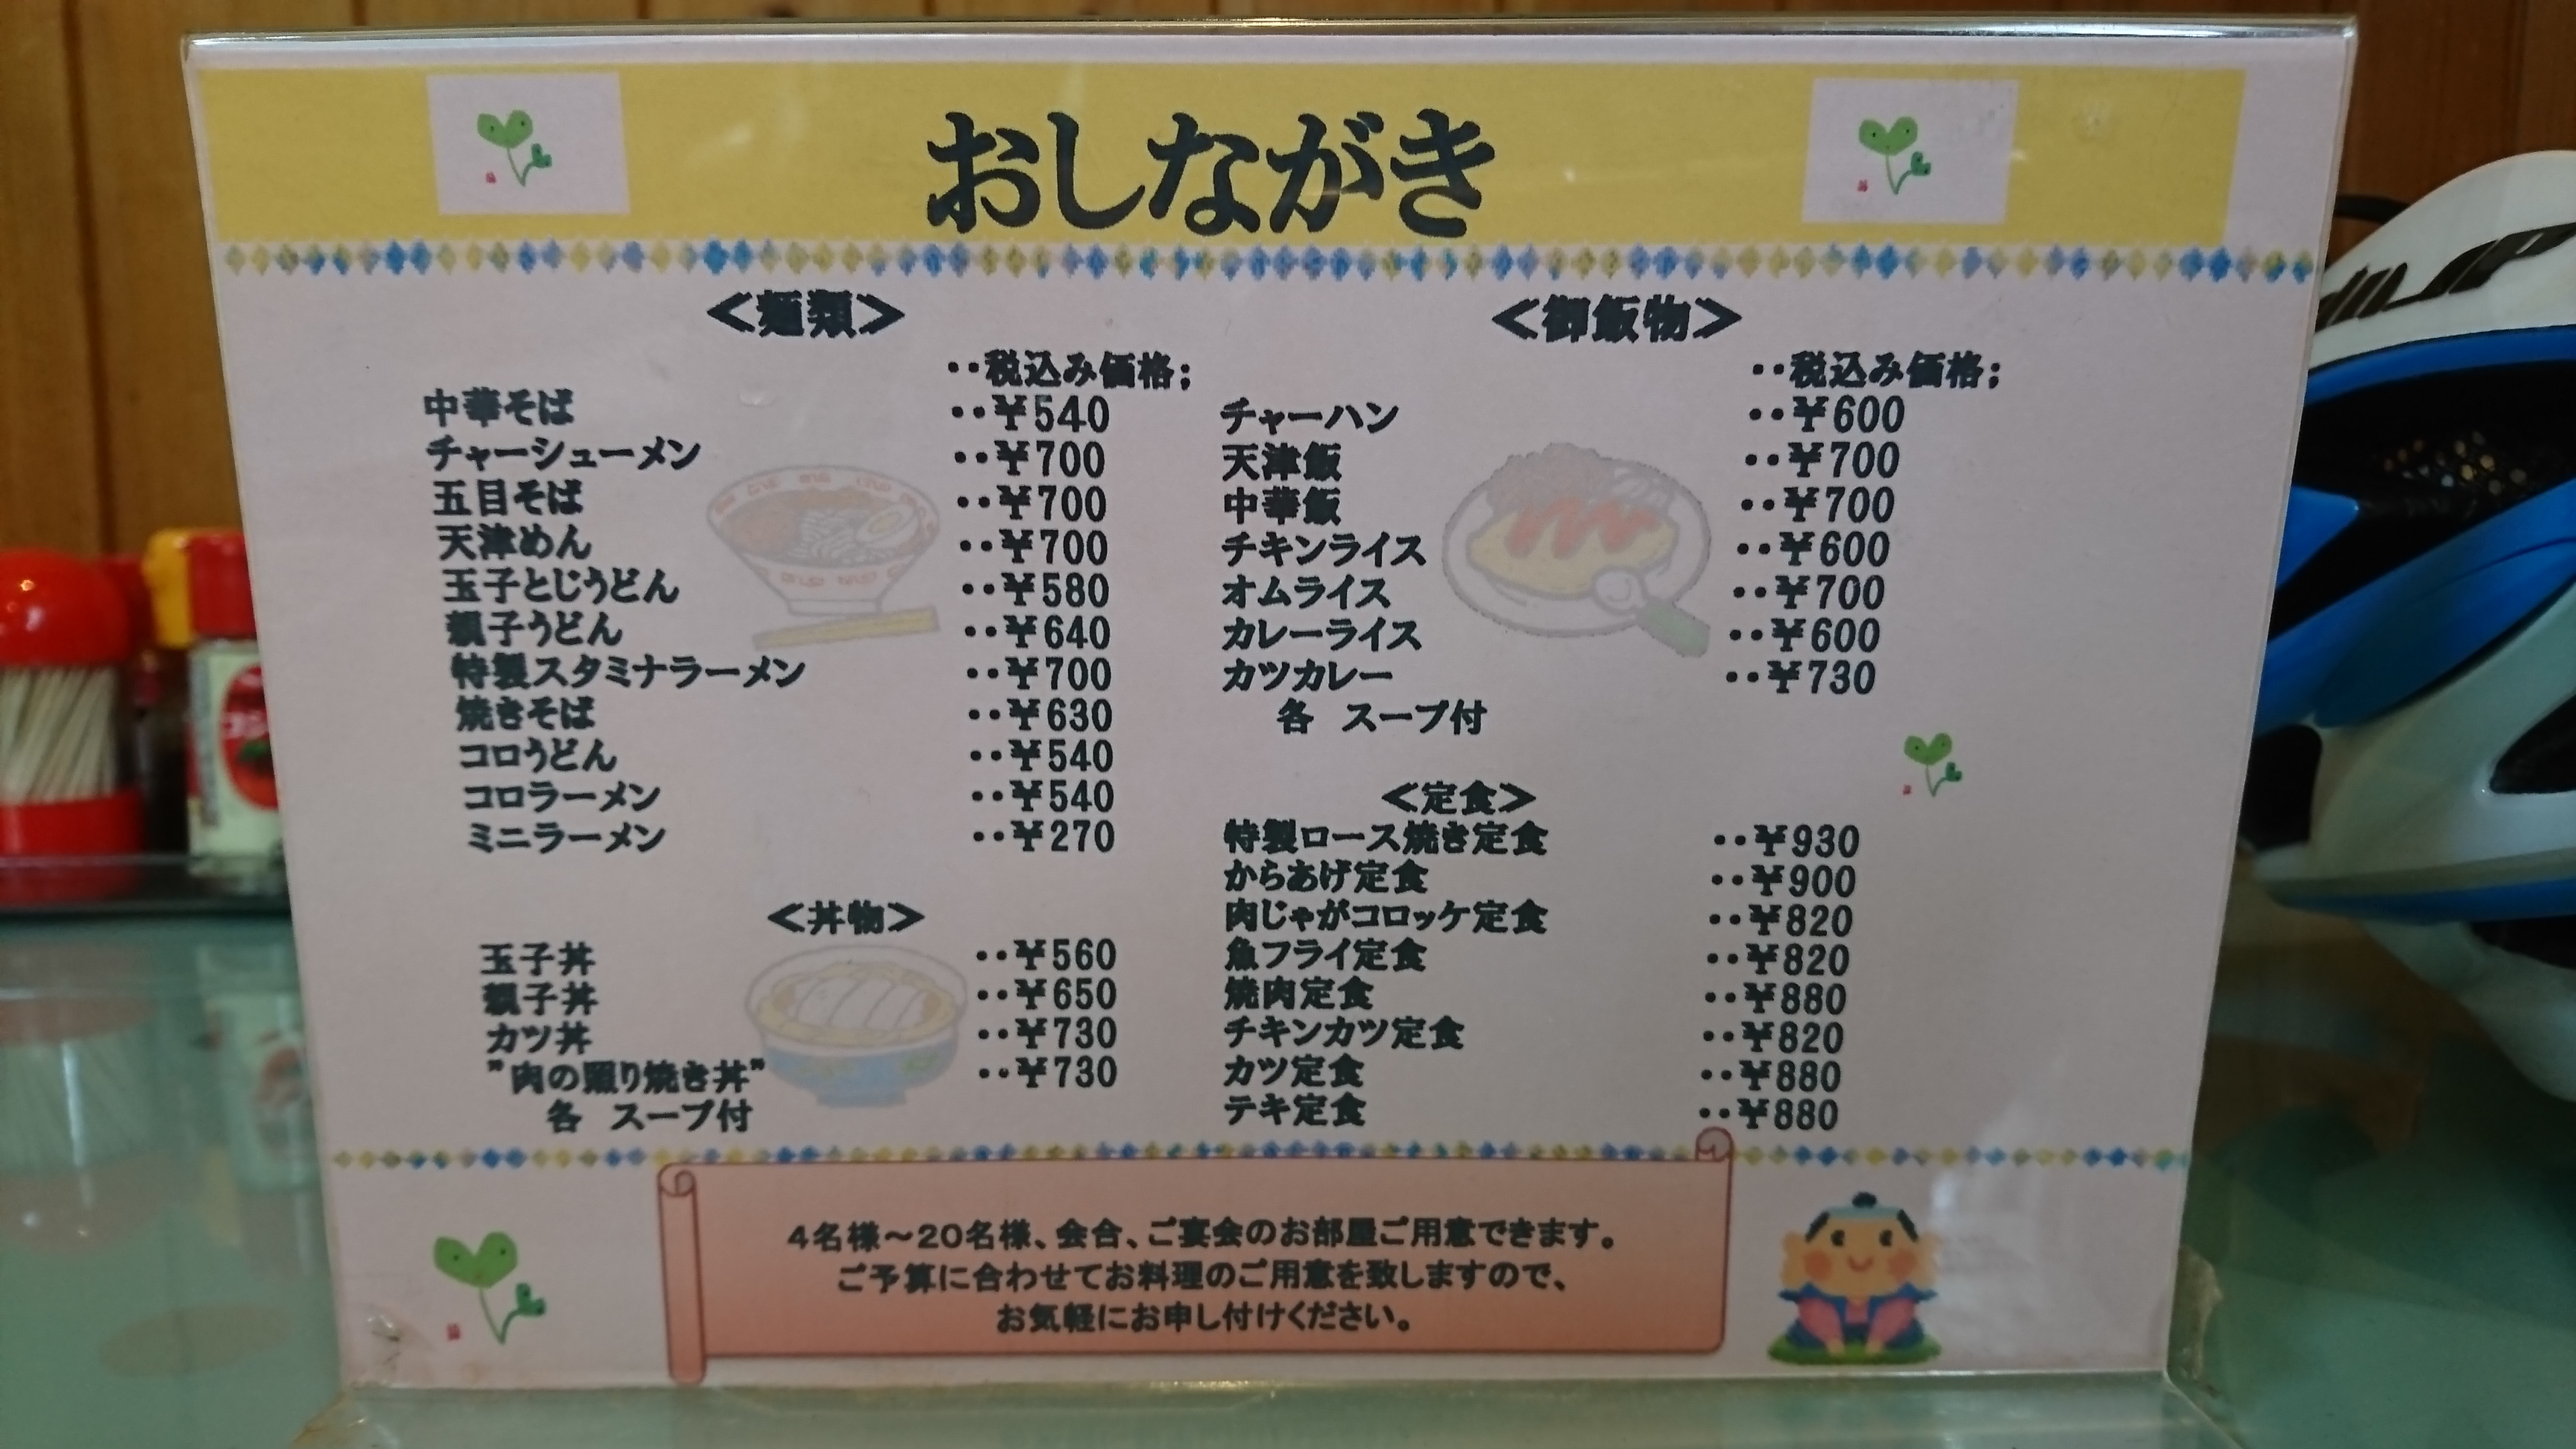 おしながき
＜麺類＞
‥税込み価格;
中華そば ‥¥540
チャーシューメン ‥¥700
五目そば ‥¥700
天津めん ‥¥700
玉子とじうどん ‥¥580
親子うどん ‥¥640
特製スタミナラーメン ‥¥700
焼きそば ‥¥630
コロうどん ‥¥540
コロラーメン ‥¥540
ミニラーメン ‥¥270
＜丼物＞
玉子丼 ‥¥560
親子丼 ‥¥650
カツ丼 ‥¥730
”肉の照り焼き丼” ‥¥730
各　スープ付
＜御飯物＞
‥税込み価格;
チャーハン ‥¥600
天津飯 ‥¥700
中華飯 ‥¥700
チキンライス ‥¥600
オムライス ‥¥700
カレーライス ‥¥600
カツカレー ‥¥730
各　スープ付
＜定食＞
特製ロース焼き定食 ‥¥930
からあげ定食 ‥¥900
肉じゃがコロッケ定食 ‥¥820
魚フライ定食 ‥¥820
焼肉定食 ‥¥880
チキンカツ定食 ‥¥820
カツ定食 ‥¥880
テキ定食 ‥¥880
4名様～20名様、会合、ご宴会のお部屋ご用意できます。
ご予算に合わせてお料理のご用意を致しますので、
お気軽にお申し付けください。